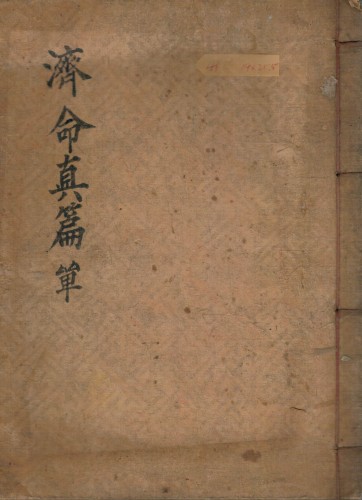 濟命真篇 單